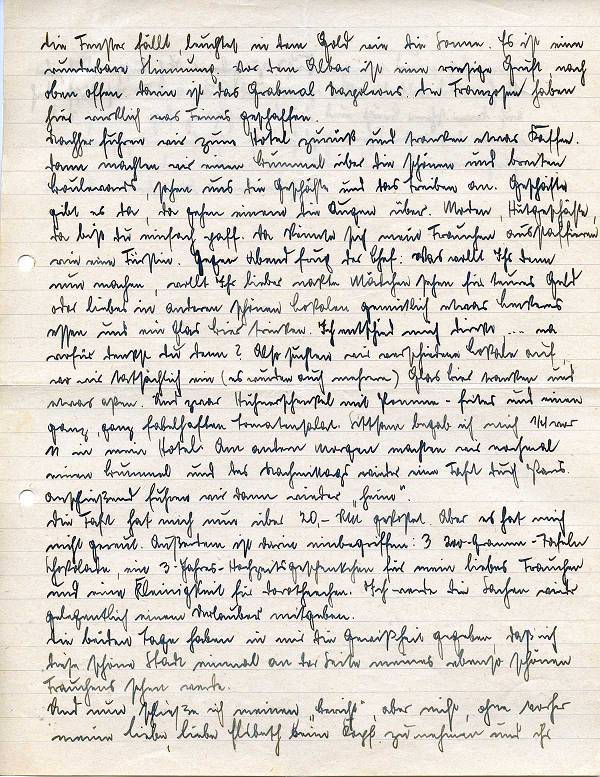 die Fenster fällt, leuchtet in dem Gold wie die Sonne. Es ist eine
wunderbare Stimmung. Vor dem Altar ist eine riesige Gruft nach
oben offen. Darin ist das Grabmal Napoleons. Die Franzosen haben
hier wirklich was Feines geschaffen.
Nachher fuhren wir zum Hotel zurück und tranken etwas Kaffee.
Dann machten wir einen Bummel über die schönen und breiten
Boulevards, sahen uns die Geschäfte und das Treiben an. Geschäfte
gibt es da, da gehen einem die Augen über. Moden, Hutgeschäfte,
da bist du einfach paff. Da könnte sich mein Frauchen ausstaffieren
wie eine Fürstin. Gegen Abend frug der Chef: Was wollt Ihr denn
nun machen, wollt Ihr lieber nackte Mädchen sehen für teures Geld
oder lieber in anderen schönen Lokalen gemütlich etwas Leckeres
essen und ein Glas Bier trinken. Ich entschied mich direkt ... na
wofür denkst du denn? Also suchten wir verschiedene Lokale auf,
wo wir tatsächlich ein (es wurden auch mehrere) Glas Bier tranken und
etwas aßen. Und zwar Hühnerschenkel mit Pomme-frites und einen
ganz, ganz fabelhaften Tomatensalat. Sittsam begab ich mich 1/4 vor
11 in mein Hotel. Am andern Morgen machten wir nochmal
einen Bummel und des Nachmittags wieder eine Fahrt durch Paris.
Anschließend fuhren wir dann wieder "heim".
Die Fahrt hat mich nun über 20,- RM gekostet. Aber es hat mich
nicht gereut. Außerdem ist darin einbegriffen: 3 200-Gramm-Tafeln
Schokolade, ein 3-Jahres-Hochzeitsgeschenkchen für mein liebes Frauchen
und eine Kleinigkeit für Dorotheechen. Ich werde die Sachen wieder
gelegentlich einem Urlauber mitgeben.
Die beiden Tage haben in mir die Gewißheit gegeben, daß ich
diese schöne Stadt einmal an der Seite meines ebenso schönen
Frauchens sehen werde.
Und nun schließe ich meinen "Bericht", aber nicht, ohne vorher
meine liebe, liebe Elsbeth beim Kopf zu nehmen und ihr